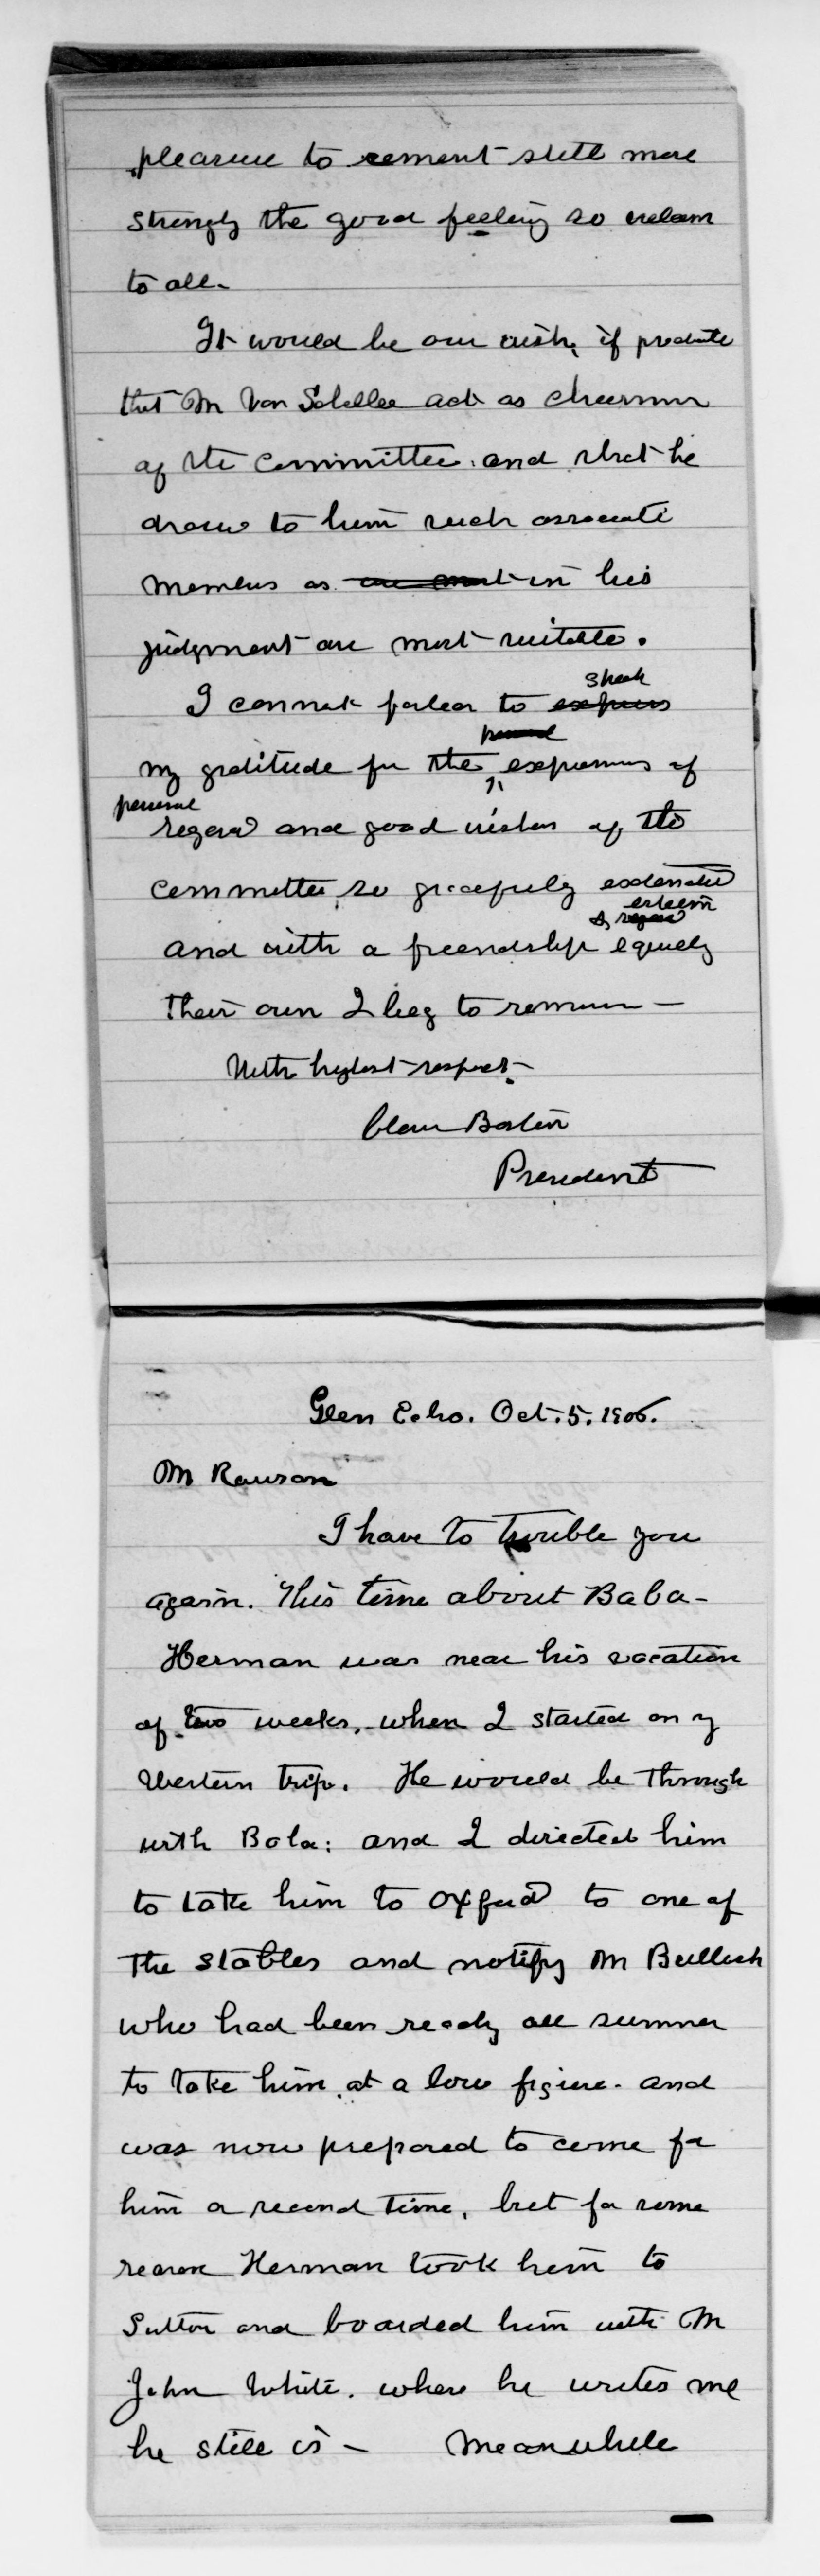 pleasure to cement still more
strongly the good feeling so welcom
to all.
It would be our wish, if
that Mr Von Schelle act as chairman
of the committee, and that he
draw to him such associate
members as are most in his
judgment are most suitable.
I cannot forbear to express speak
my gratitude for the personal expressions of
personal
regard and good wishes of the
committee, so gracefully extended
esteem
& regard
and with a friendship equally
their own I beg to remain —
With highest respect.
Clara Barton
President
Glen Echo. Oct. 5. 1906.
Mr Rawson
I have to trouble you
again. This time about Baba -
Herman was near his vacation
of two weeks, when I started on my
Western trip. He would be through
with Baba: and I directed him
to take him to Oxford to one of
the stables and notify Mr Bullock
who had been ready all summer
to take him at a low figure. and
was now prepared to come for
him a second time, but for some
reason Herman took him to
Sutton and boarded him with Mr
John White. where he writes me
he still is — Meanwhile